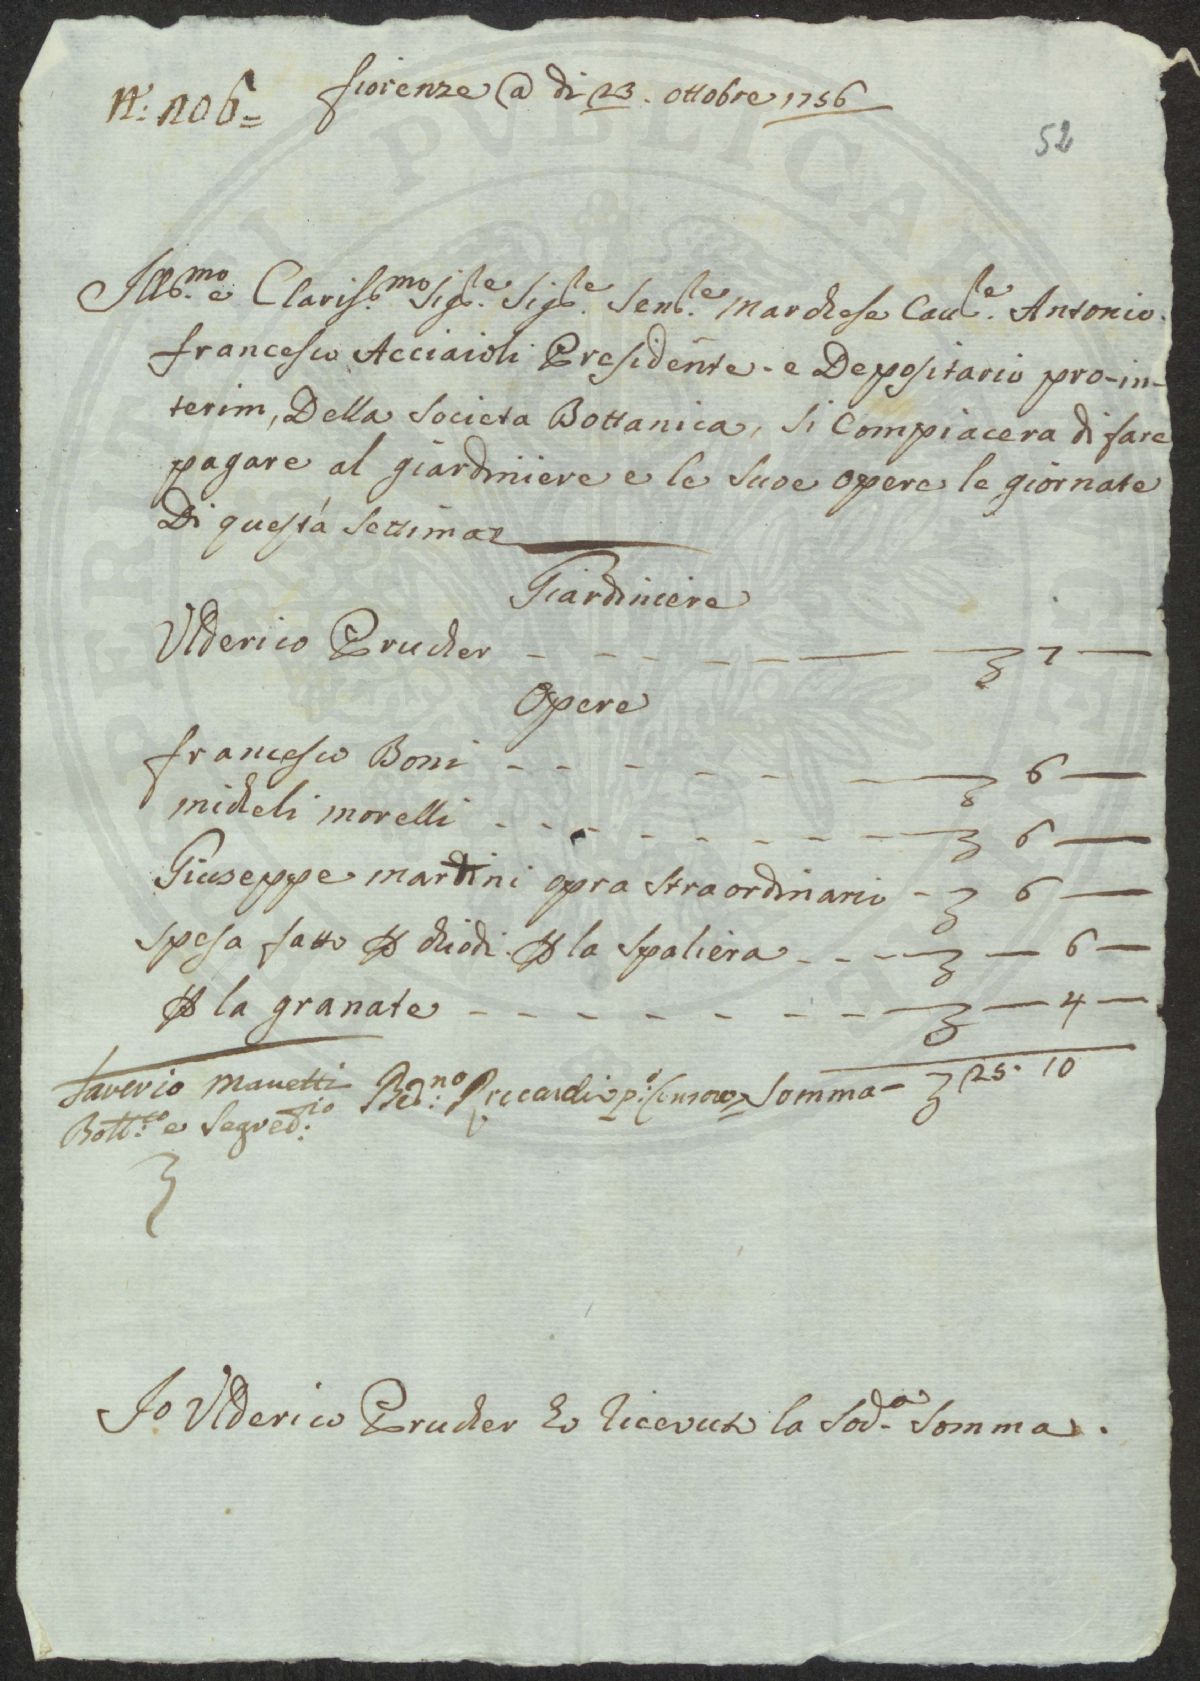 N.° 106=
fiorenze @ di 23. ottobre 1756
52
Ill.mo e Claris.mo Sig.re Sig.re Sen.re Marchese Cau.re Antonio
francesco Acciaioli Presidente e Depositario pro-in-
terim, Della Societa Bottanica, si Compiacera di fare
pagare al giardiniere e le suoe opere le giornate
Di questa settima
Giardiniere
Ulderico Prucher - - - - - 7 —
Opere
francesco Boni - - - - - 6 —
micheli morelli - - - - - 6 —
Giuseppe martini opra straordinario - 6 —
spesa fatto p chiodi p la spaliera - - - — 6 —
p la granate - - - - - — 4 —
Saverio Manetti Bed.no Riccardi p.° Censore Somma - 25. 10
Bott.co e Segret.rio
Io Ulderico Prucher ho riceuuto la Sod.a Somma.
PVBLICA